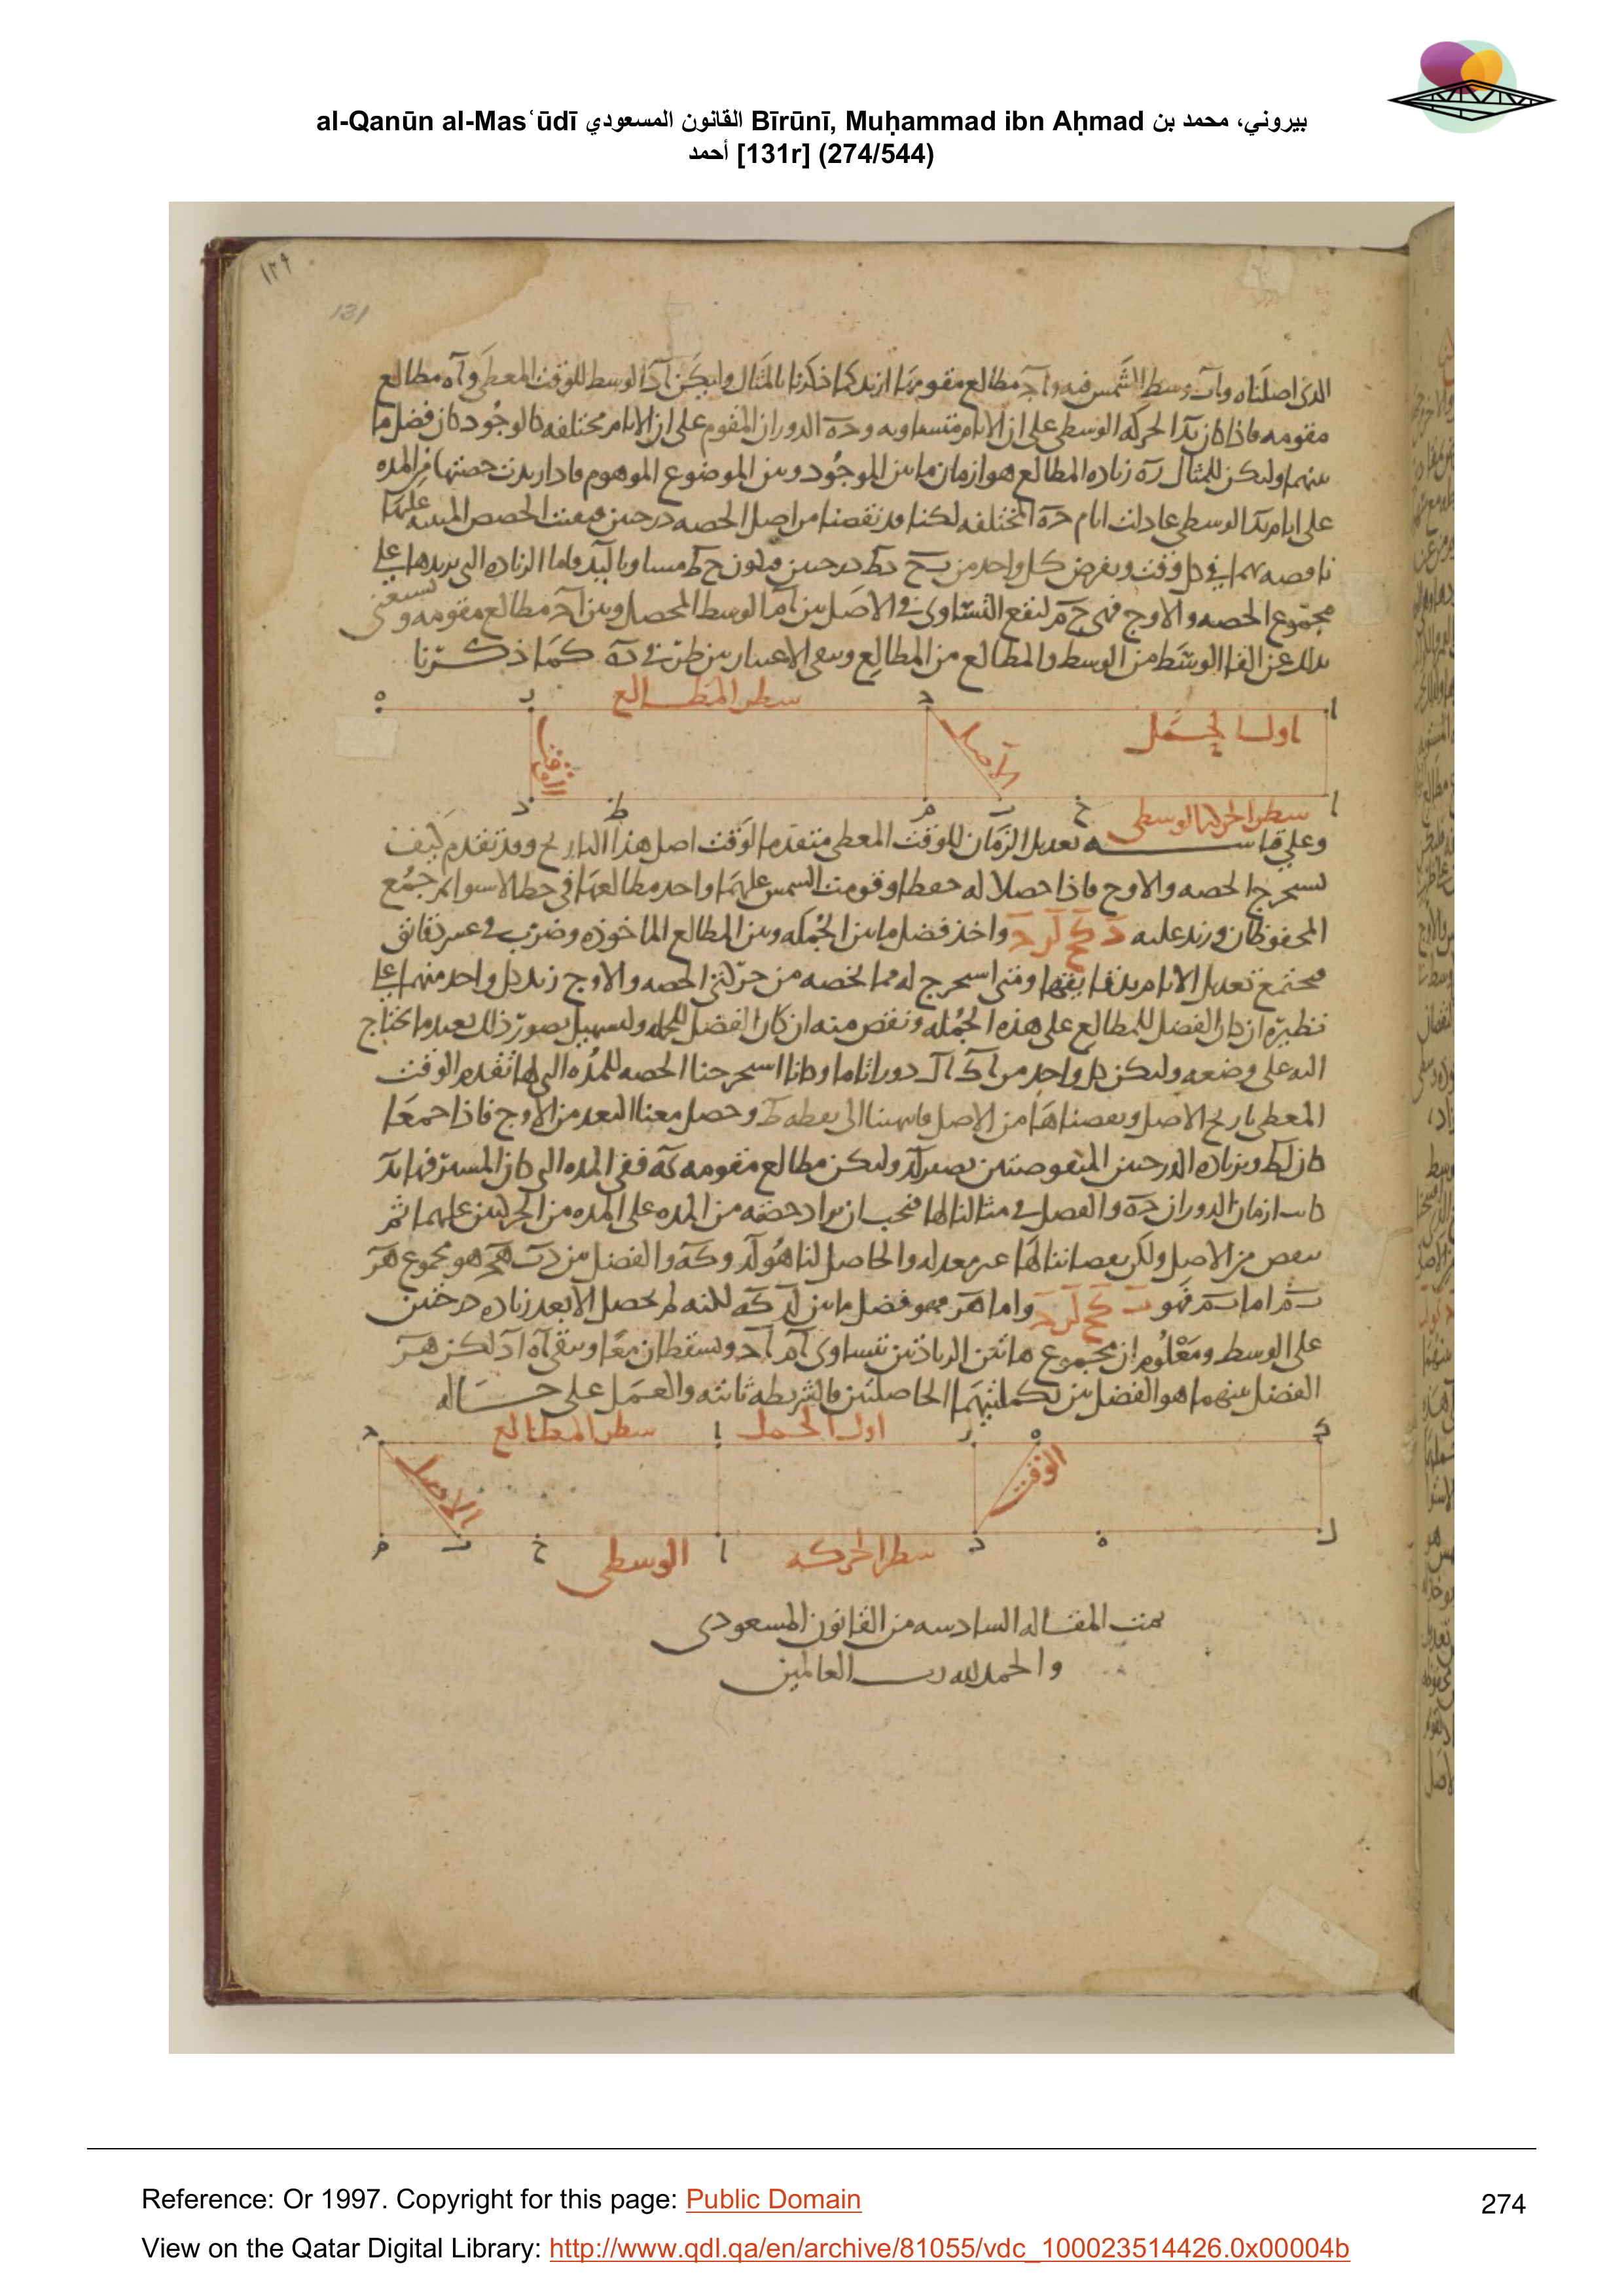 al-Qanūn al-Masʿūdī القانون المسعودي Bīrūnī, Muḥammad ibn Aḥmad بيروني، محمد بن
أحمد [131r] (274/544)
١٢٩
131
الذى اصلناه واب وسط الشمس فيه واج مطالع مقومها ازيد كما ذكرنا بالمثال وليكن اد الوسط للوقت المعطى واه مطالع
مقومه فاذا كان بد الحركه الوسطى على ان الايام متساويه وحه الدوران المقوم على ان الايام مختلفه كالوجود كان فضل ما
بينهما وليكن للمثال زه زياده المطالع هو ازمان ما بين الموجود وبين الموضوع الموهوم فاذا زيدت حصتها من المده
على ايام بد الوسطى عادلت ايام حه المختلفه لكنا قد نقصنا من اصل الحصه درجتين فبقيت الحصص المبنيه عليها
ناقصه بهما فى كل وقت ويفرض كل واحد من بح دط درجتين فيكون حط مساويا لبد واما الزياده التى نزيدها على
مجموع الحصه والاوج فهى حم لنقع التساوى فى الاصل بين ام الوسط المحصل وبين اج مطالع مقومه ونستغنى
بذلك عن القا الوسط من الوسط والمطالع من المطالع وبقى الاعتبار بين طم فى ده كما ذكرنا
ه ر سطر المطالع ج ا
اول الحمل
الاصل
الوقت
د ط م ب ح سطر الحركه الوسطى ا
وعلى قياسه تعديل الزمان للوقت المعطى متقدما لوقت اصل هذا التاريخ وقد تقدم كيف
نستخرج الحصه والاوج فاذا حصلا له حفظا وقومت الشمس عليهما واخذ مطالعها فى خط الاستوا ثم جمع
المحفوظان وزيد عليه واخذ فضل ما بين الجمله وبين المطالع الماخوذه وضرب فى عشر دقائق
فيجتمع تعديل الايام بدقايقها ومتى استخرج له مما يخصه من حركتى الحصه والاوج زيد كل واحد منهما على
نظيره ان كان الفضل للمطالع على هذه الجمله ونقص منه ان كان الفضل للجمله ولتسهيل تصور ذلك نعيد ما نحتاج
اليه على وضعه وليكن كل واحد من اك ال دورا تاما وكانا استخرجنا الحصه للمده التى لها تقدم الوقت
المعطى تاريخ الاصل ونقصناها من الاصل فانتهينا الى نقطه ط وحصل معنا البعد من الاوج فاذا جمعا
كان لط وبزياده الدرجتين المنقوصتين يصير لد وليكن مطالع مقومه كه ففى المده التى كان المسير فيها بد
كانت ازمان الدوران جه والفصل فى مثالنا لها فيجب ان يزاد حصته من المده على المده من الحركتين عليهما ثم
ينقص من الاصل ولكن نقصاننا لها غير معدله والحاصل لنا هو لد وكه والفضل بين دب هج هو مجموع هر
بم اما بم فهو واما هر فهو فضل ما بين لد كه لكنه لم يحصل الا بعد زياده درجتين
على الوسط ومعلوم ان مجموع هاتين الزيادتين تتساوى ام اج ويسقطان معا ويبقى اه اد لكن هر
الفضل بينهما هو الفضل بين تكملتيهما الحاصلتين فالشريطه ثابته والعمل على حاله
ج سطر المطالع ا اول الحمل ر ه ك
الاصل
الوقت
م ب ح الوسطى ا سطر الحركه د ه ل
تمت المقاله السادسه من القانون المسعودى
والحمد لله رب العالمين
Reference: Or 1997. Copyright for this page: Public Domain
274
View on the Qatar Digital Library: http://www.qdl.qa/en/archive/81055/vdc_100023514426.0x00004b